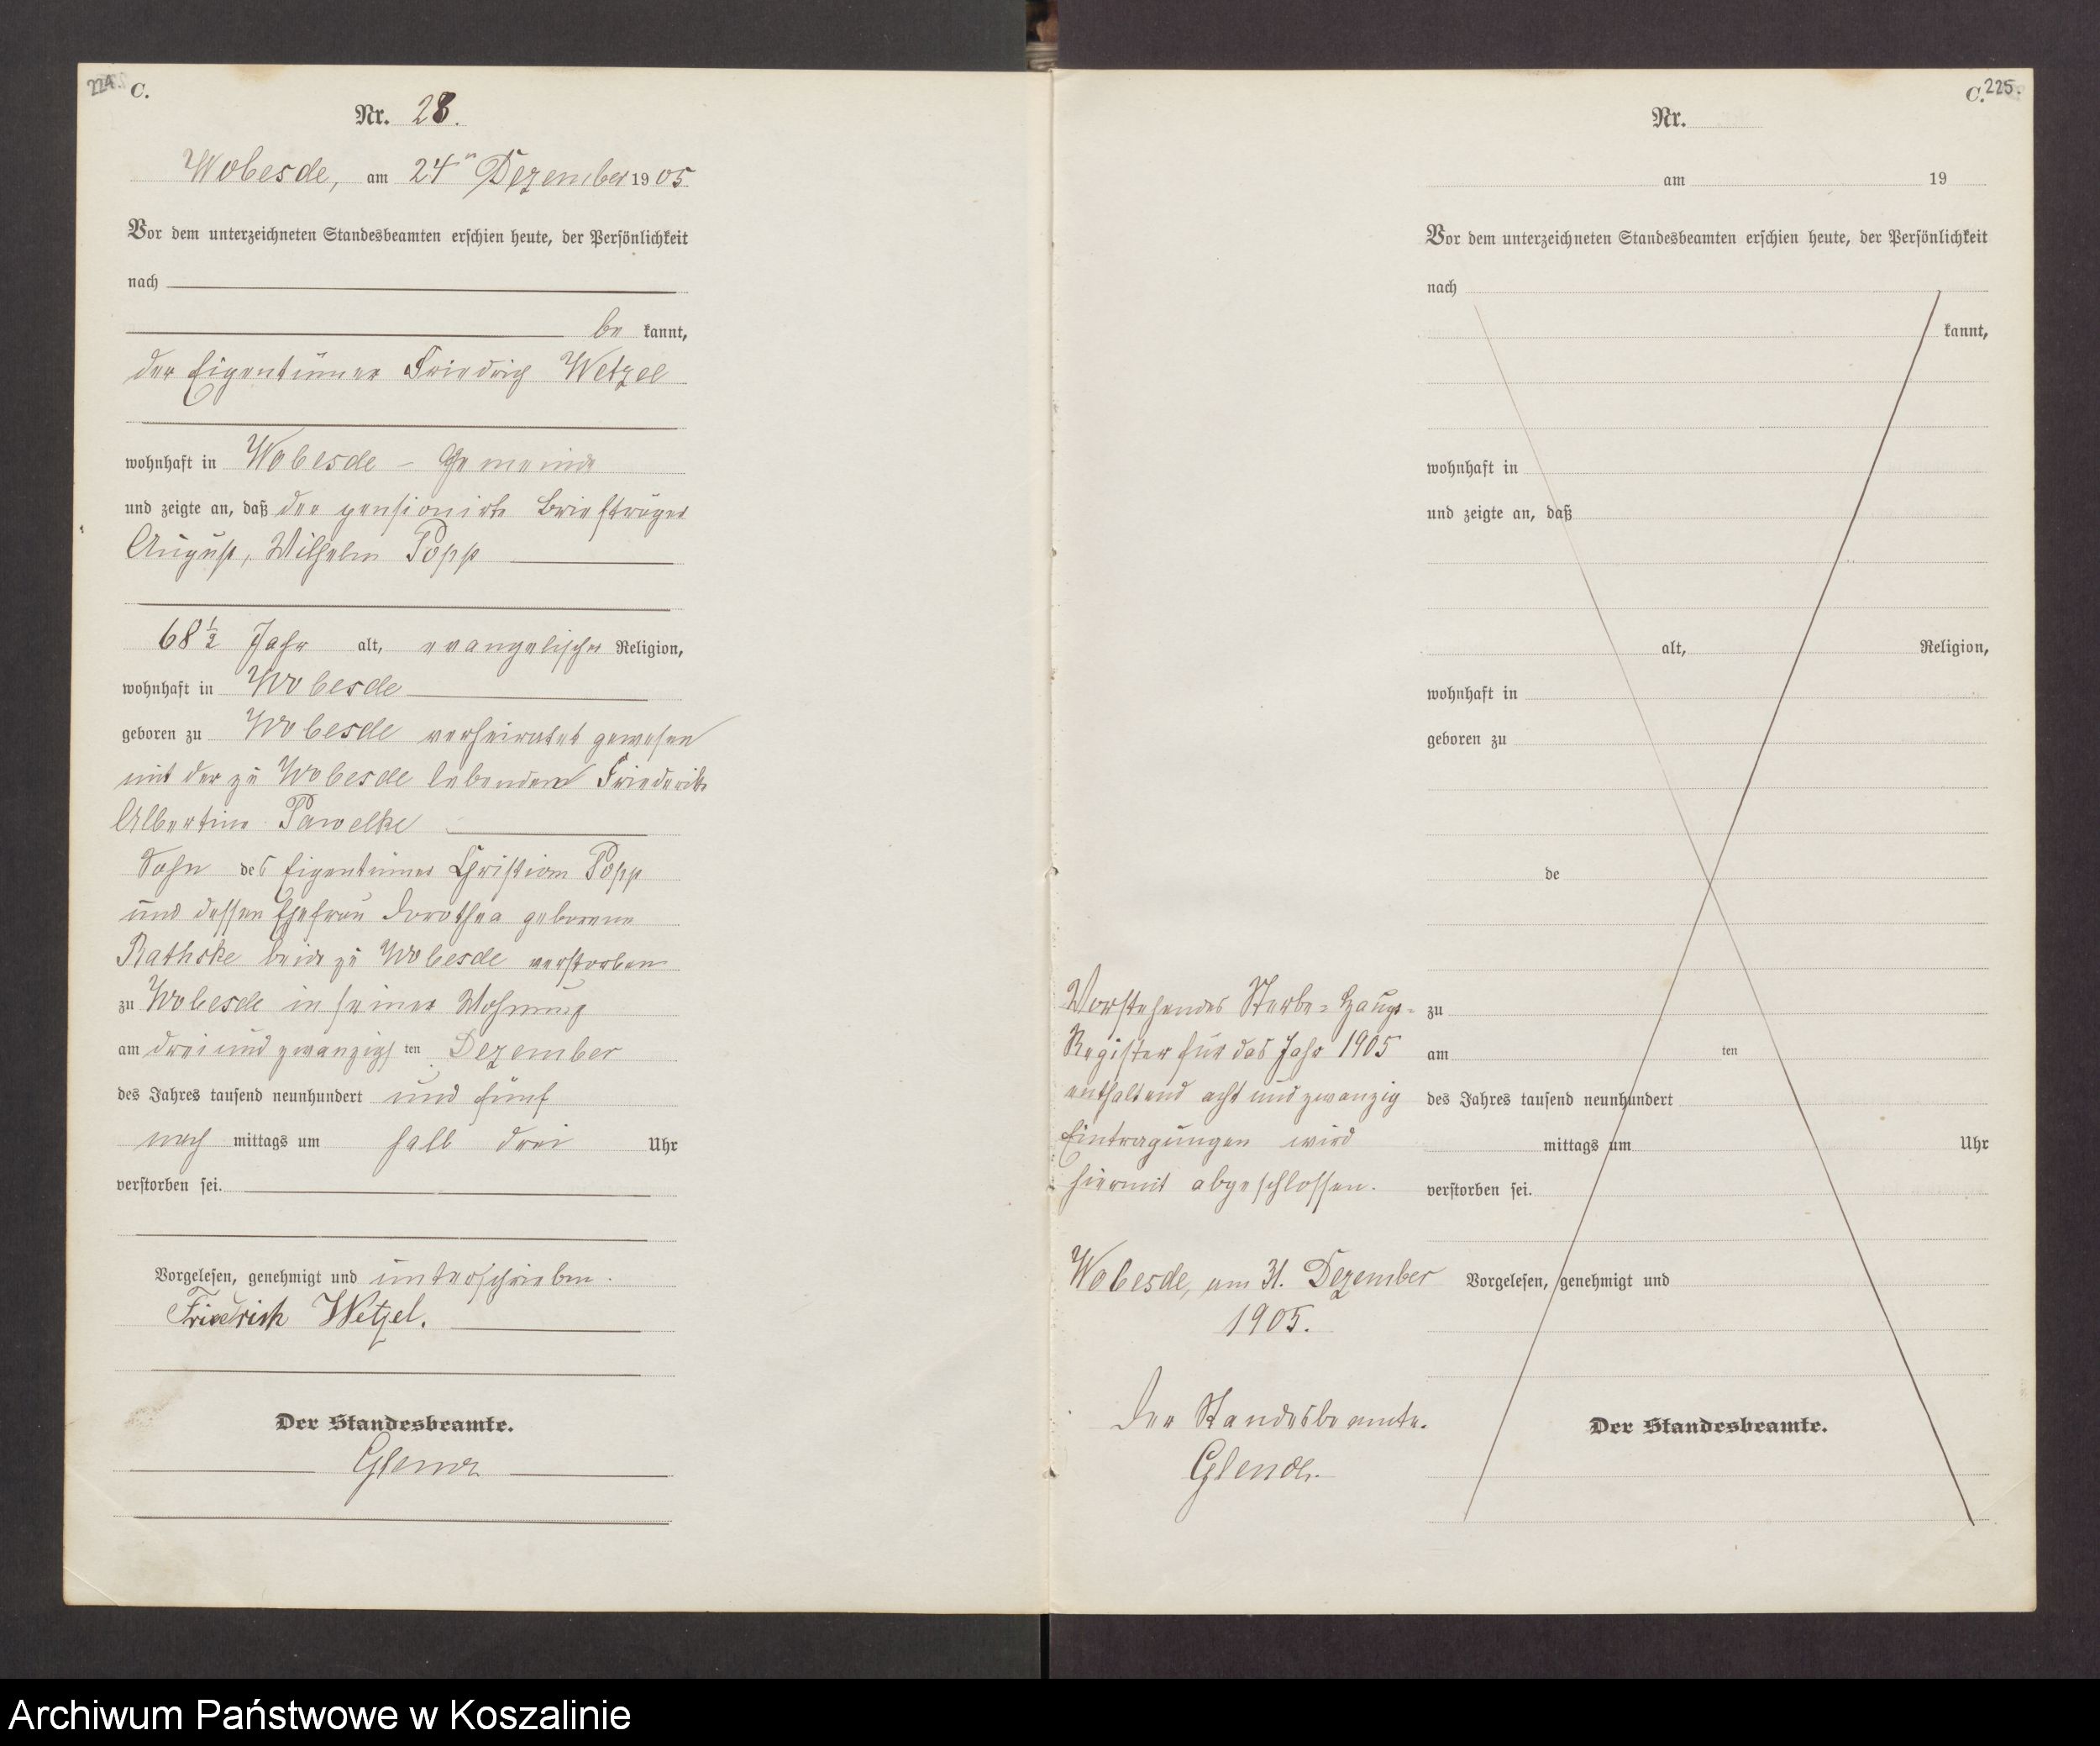 224.
C.
Nr. 28.
Wobesde, am 24ten Dezember 1905
Vor dem unterzeichneten Standesbeamten erschien heute, der Persönlichkeit
nach
be kannt,
der Eigentümer Friedrich Wetzel
wohnhaft in Wobesde - Gemeinde
und zeigte an, daß der pensionirte Briefträger
August, Wilhelm Popp
68 1/2 Jahr alt, evangelischer Religion,
wohnhaft in Wobesde
geboren zu Wobesde verheiratet gewesen
mit der zu Wobesde lebenden Friederike
Albertine Pawelke
Sohn des Eigentümer Christian Popp
und dessen Ehefrau Dorothea geborene
Rathske beide zu Wobesde verstorben
zu Wobesde in seiner Wohnung
am drei und zwanzigsten Dezember
des Jahres tausend neunhundert und fünf
nach mittags um halb drei Uhr
verstorben sei.
Vorgelesen, genehmigt und unterschrieben.
Friedrich Wetzel.
Der Standesbeamte.
C. 225.
Nr.
am 19
Vor dem unterzeichneten Standesbeamten erschien heute, der Persönlichkeit
nach
kannt,
wohnhaft in
und zeigte an, daß
alt, Religion,
wohnhaft in
geboren zu
de
zu
am ten
des Jahres tausend neunhundert
mittags um Uhr
verstorben sei.
Vorgelesen, genehmigt und
Der Standesbeamte.
Vorstehendes Sterbe-Haupt-
Register für das Jahr 1905
enthaltend acht und zwanzig
Eintragungen wird
hiermit abgeschlossen.
Wobesde, am 31. Dezember
1905.
Der Standesbeamte.
Archiwum Państwowe w Koszalinie